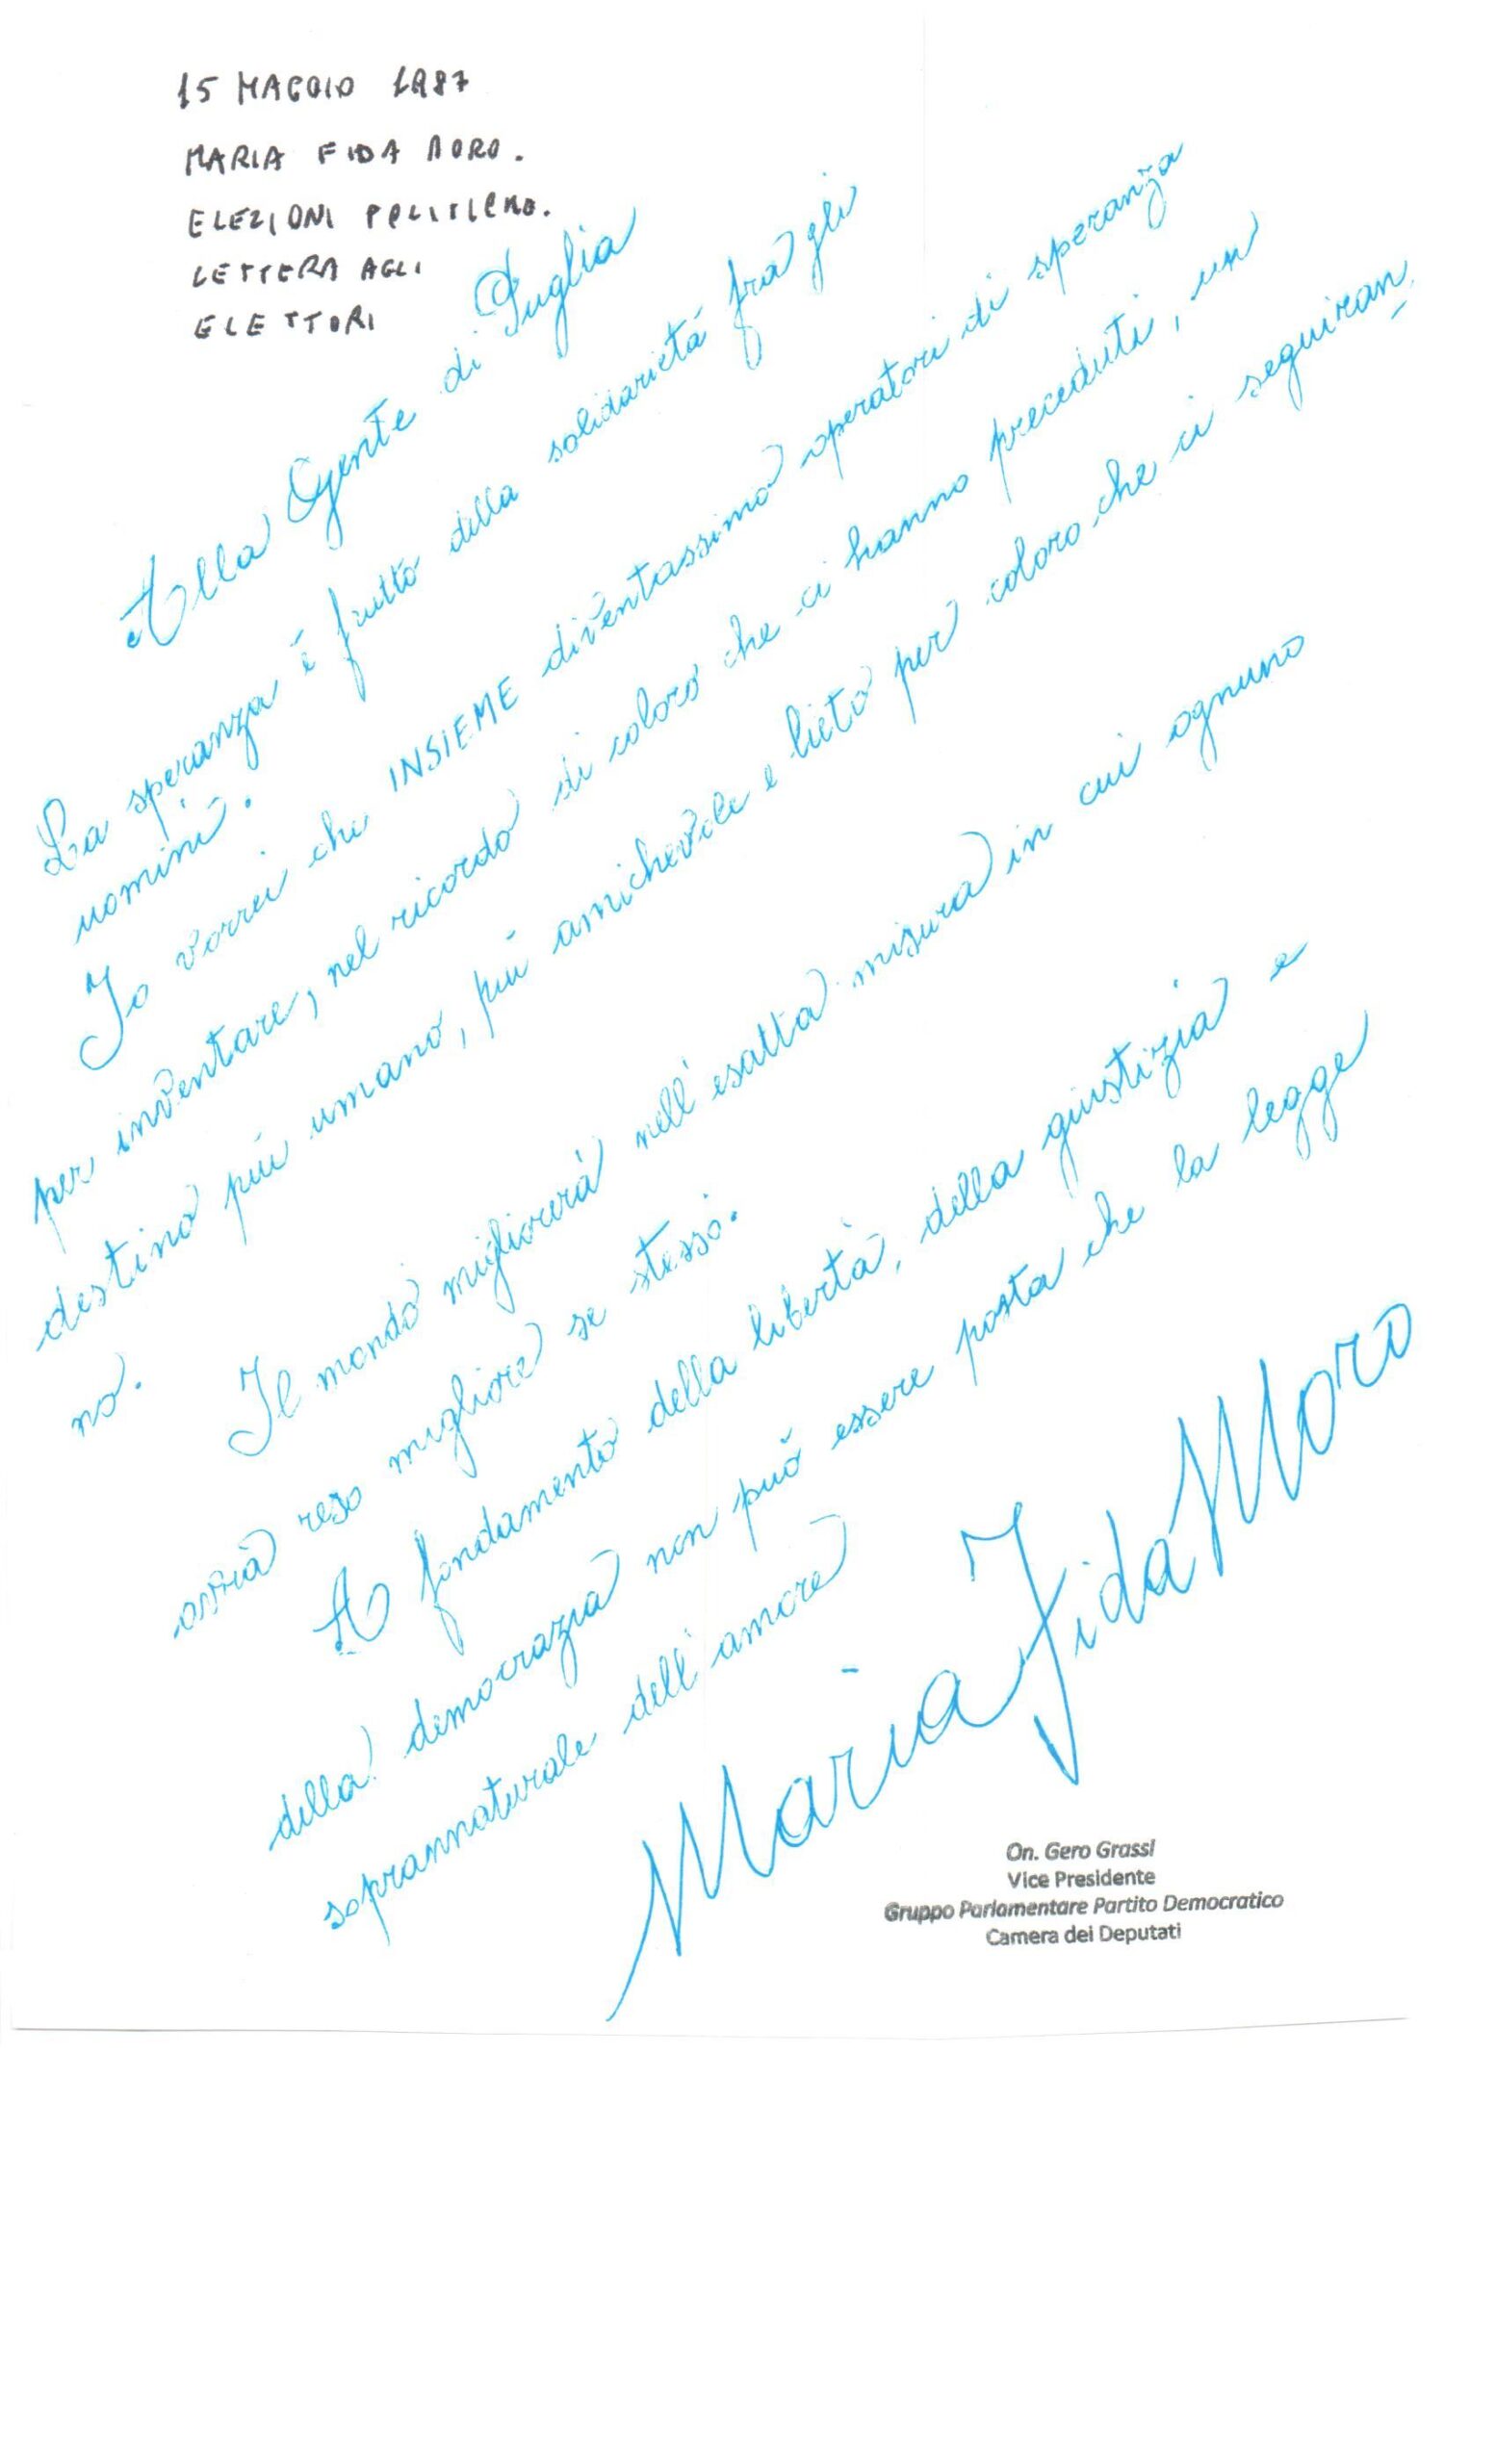 15 MAGGIO 1987
MARIA FIDA MORO.
ELEZIONI POLITICHE.
LETTERA AGLI
ELETTORI
Alla Gente di Puglia
La speranza è frutto della solidarietà fra gli
uomini.
Io vorrei che INSIEME diventassimo operatori di speranza
per inventare, nel ricordo di coloro che ci hanno preceduti, un
destino più umano, più amichevole e lieto per coloro che ci seguiran
no.
Il mondo migliorerà nell'esatta misura in cui ognuno
avrà reso migliore se stesso.
A fondamento della libertà, della giustizia e
della democrazia non può essere posta che la legge
soprannaturale dell'amore
Maria Fida Moro
On. Gero Grassi
Vice Presidente
Gruppo Parlamentare Partito Democratico
Camera dei Deputati